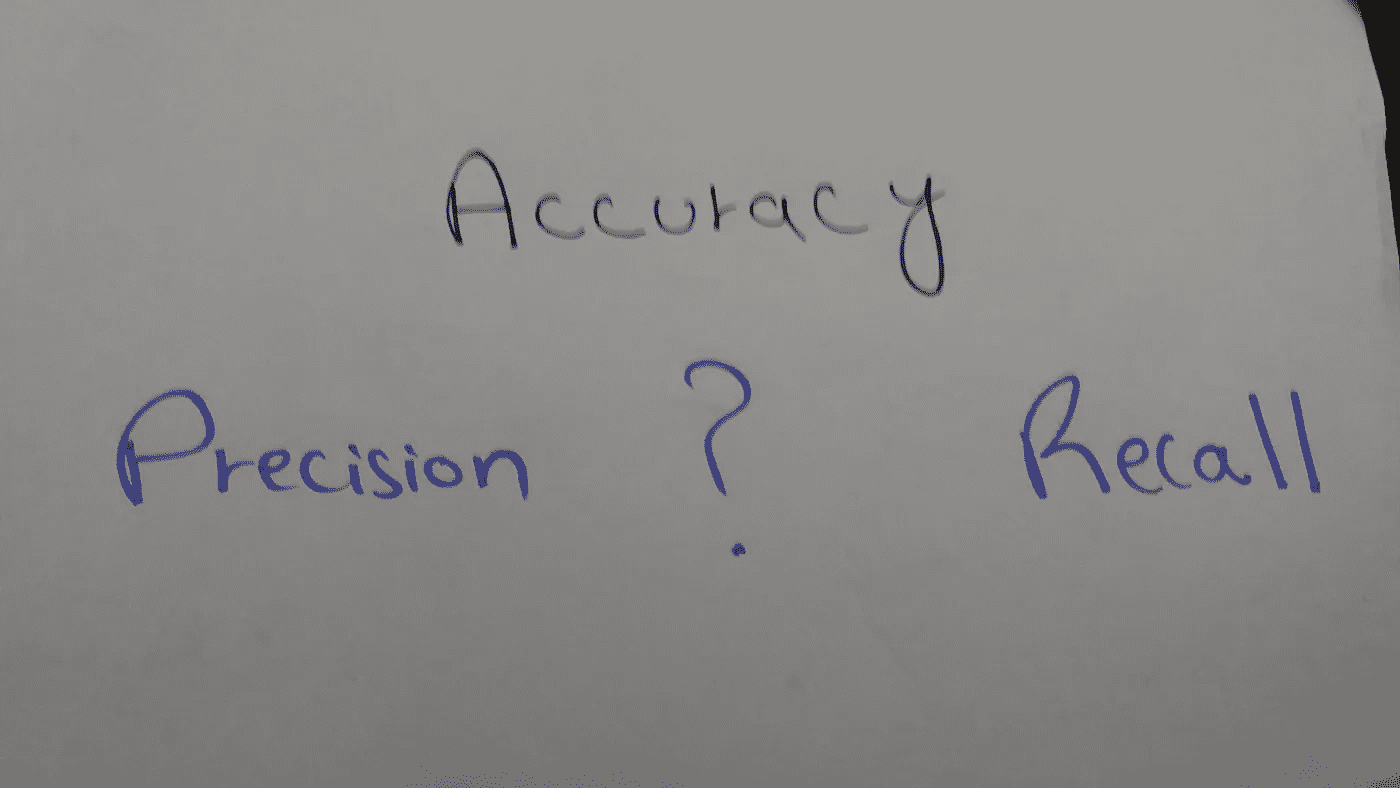 Accuracy
Precision ? Recall